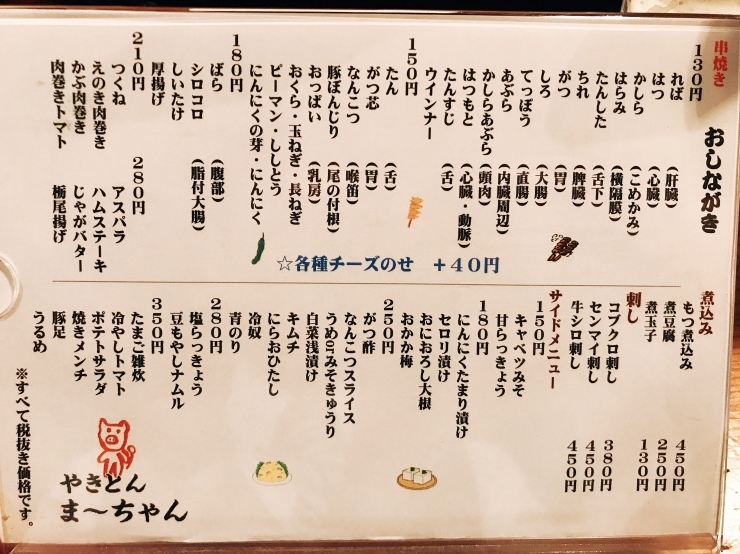 おしながき
串焼き
130円
れば (肝臓)
はつ (心臓)
かしら (こめかみ)
はらみ (横隔膜)
たんした (舌下)
ちれ (脾臓)
がつ (胃)
しろ (大腸)
てっぽう (直腸)
あぶら (内臓周辺)
かしらあぶら (頭肉)
はつもと (心臓・動脈)
たんすじ (舌)
ウインナー
150円
たん (舌)
がつ芯 (胃)
なんこつ (喉笛)
豚ぼんじり (尾の付根)
おっぱい (乳房)
おくら・玉ねぎ・長ねぎ
ピーマン・ししとう
にんにくの芽・にんにく
180円
ばら (腹部)
シロコロ (脂付大腸)
しいたけ
厚揚げ
210円
つくね
えのき肉巻き
かぶ肉巻き
肉巻きトマト
280円
アスパラ
ハムステーキ
じゃがバター
栃尾揚げ
☆各種チーズのせ +40円
煮込み
もつ煮込み 450円
煮豆腐 250円
煮玉子 130円
刺し
コブクロ刺し 380円
センマイ刺し 450円
牛シロ刺し 450円
サイドメニュー
150円
キャベツみそ
甘らっきょう
180円
にんにくたまり漬け
セロリ漬け
おにおろし大根
おかか梅
250円
がつ酢
なんこつスライス
うめorみそきゅうり
白菜浅漬け
キムチ
にらおひたし
冷奴
青のり
280円
塩らっきょう
豆もやしナムル
350円
たまご雑炊
冷やしトマト
ポテトサラダ
焼きメンチ
豚足
うるめ
※すべて税抜き価格です。
やきとん
ま〜ちゃん